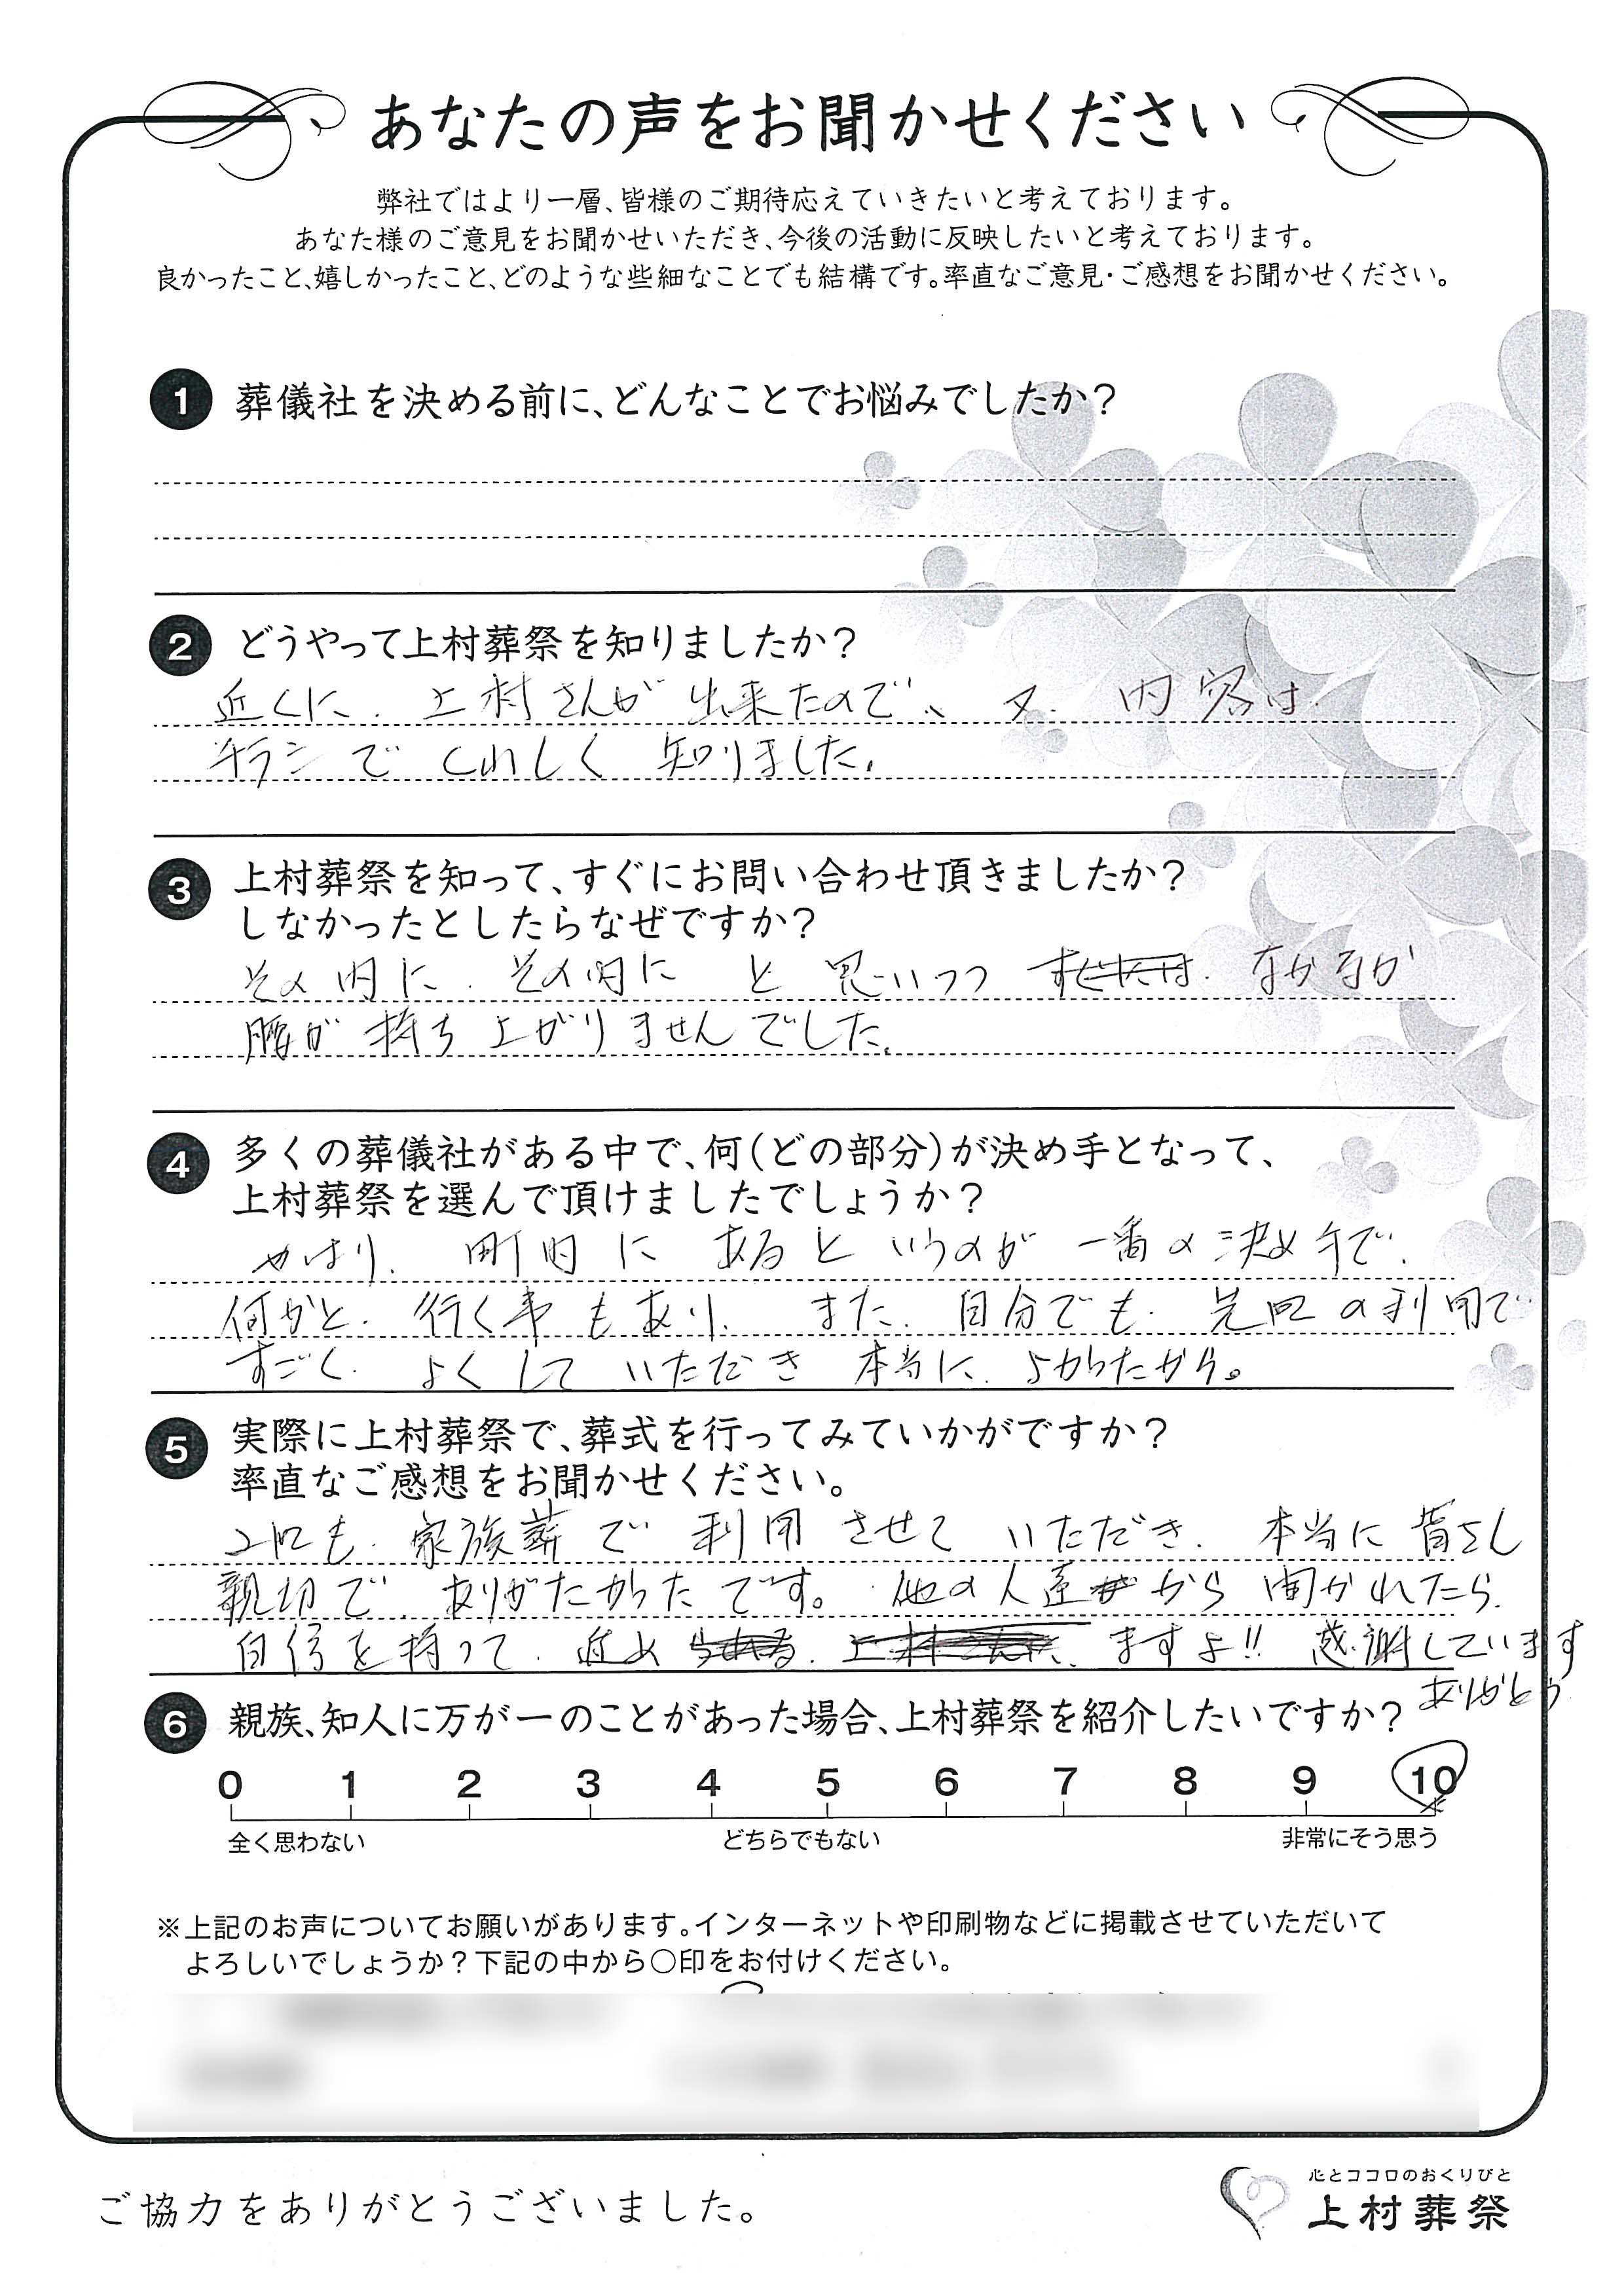 あなたの声をお聞かせください
弊社ではより一層、皆様のご期待応えていきたいと考えております。
あなた様のご意見をお聞かせいただき、今後の活動に反映したいと考えております。
良かったこと、嬉しかったこと、どのような些細なことでも結構です。率直なご意見・ご感想をお聞かせください。
1 葬儀社を決める前に、どんなことでお悩みでしたか?
2 どうやって上村葬祭を知りましたか?
近くに、上村さんが出来たので、又、内容は
チラシでくわしく知りました。
3 上村葬祭を知って、すぐにお問い合わせ頂きましたか?
しなかったとしたらなぜですか?
その内に、その内にと思いつつ なかなか
腰が持ち上がりませんでした。
4 多くの葬儀社がある中で、何(どの部分)が決め手となって、
上村葬祭を選んで頂けましたでしょうか?
やはり、町内にあるというのが一番の決め手で、
何かと、行く事もあり、また、自分でも、先回の利用で
すごく、よくしていただき本当に、よかったから。
5 実際に上村葬祭で、葬式を行ってみていかがですか?
率直なご感想をお聞かせください。
2回も、家族葬で利用させていただき、本当に皆さん
親切で、ありがたかったです。他の人達から聞かれたら、
自信を持って、進め ますよ!! 感謝しています
ありがとう
6 親族、知人に万が一のことがあった場合、上村葬祭を紹介したいですか?
0 1 2 3 4 5 6 7 8 9 10
全く思わない どちらでもない 非常にそう思う
※上記のお声についてお願いがあります。インターネットや印刷物などに掲載させていただいて
よろしいでしょうか?下記の中から○印をお付けください。
ご協力をありがとうございました。
心とココロのおくりびと
上村葬祭